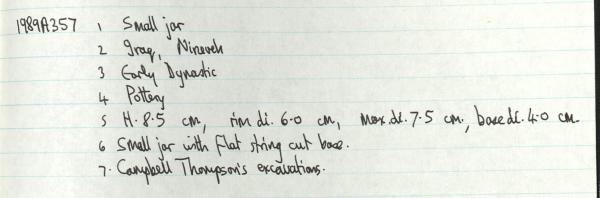 1989A357 1 Small jar
2 Iraq, Nineveh
3 Early Dynastic
4 Pottery
5 H. 8.5 cm, rim di. 6.0 cm, max. di. 7.5 cm, base di. 4.0 cm.
6 Small jar with flat string cut base.
7. Campbell Thompson's excavations.